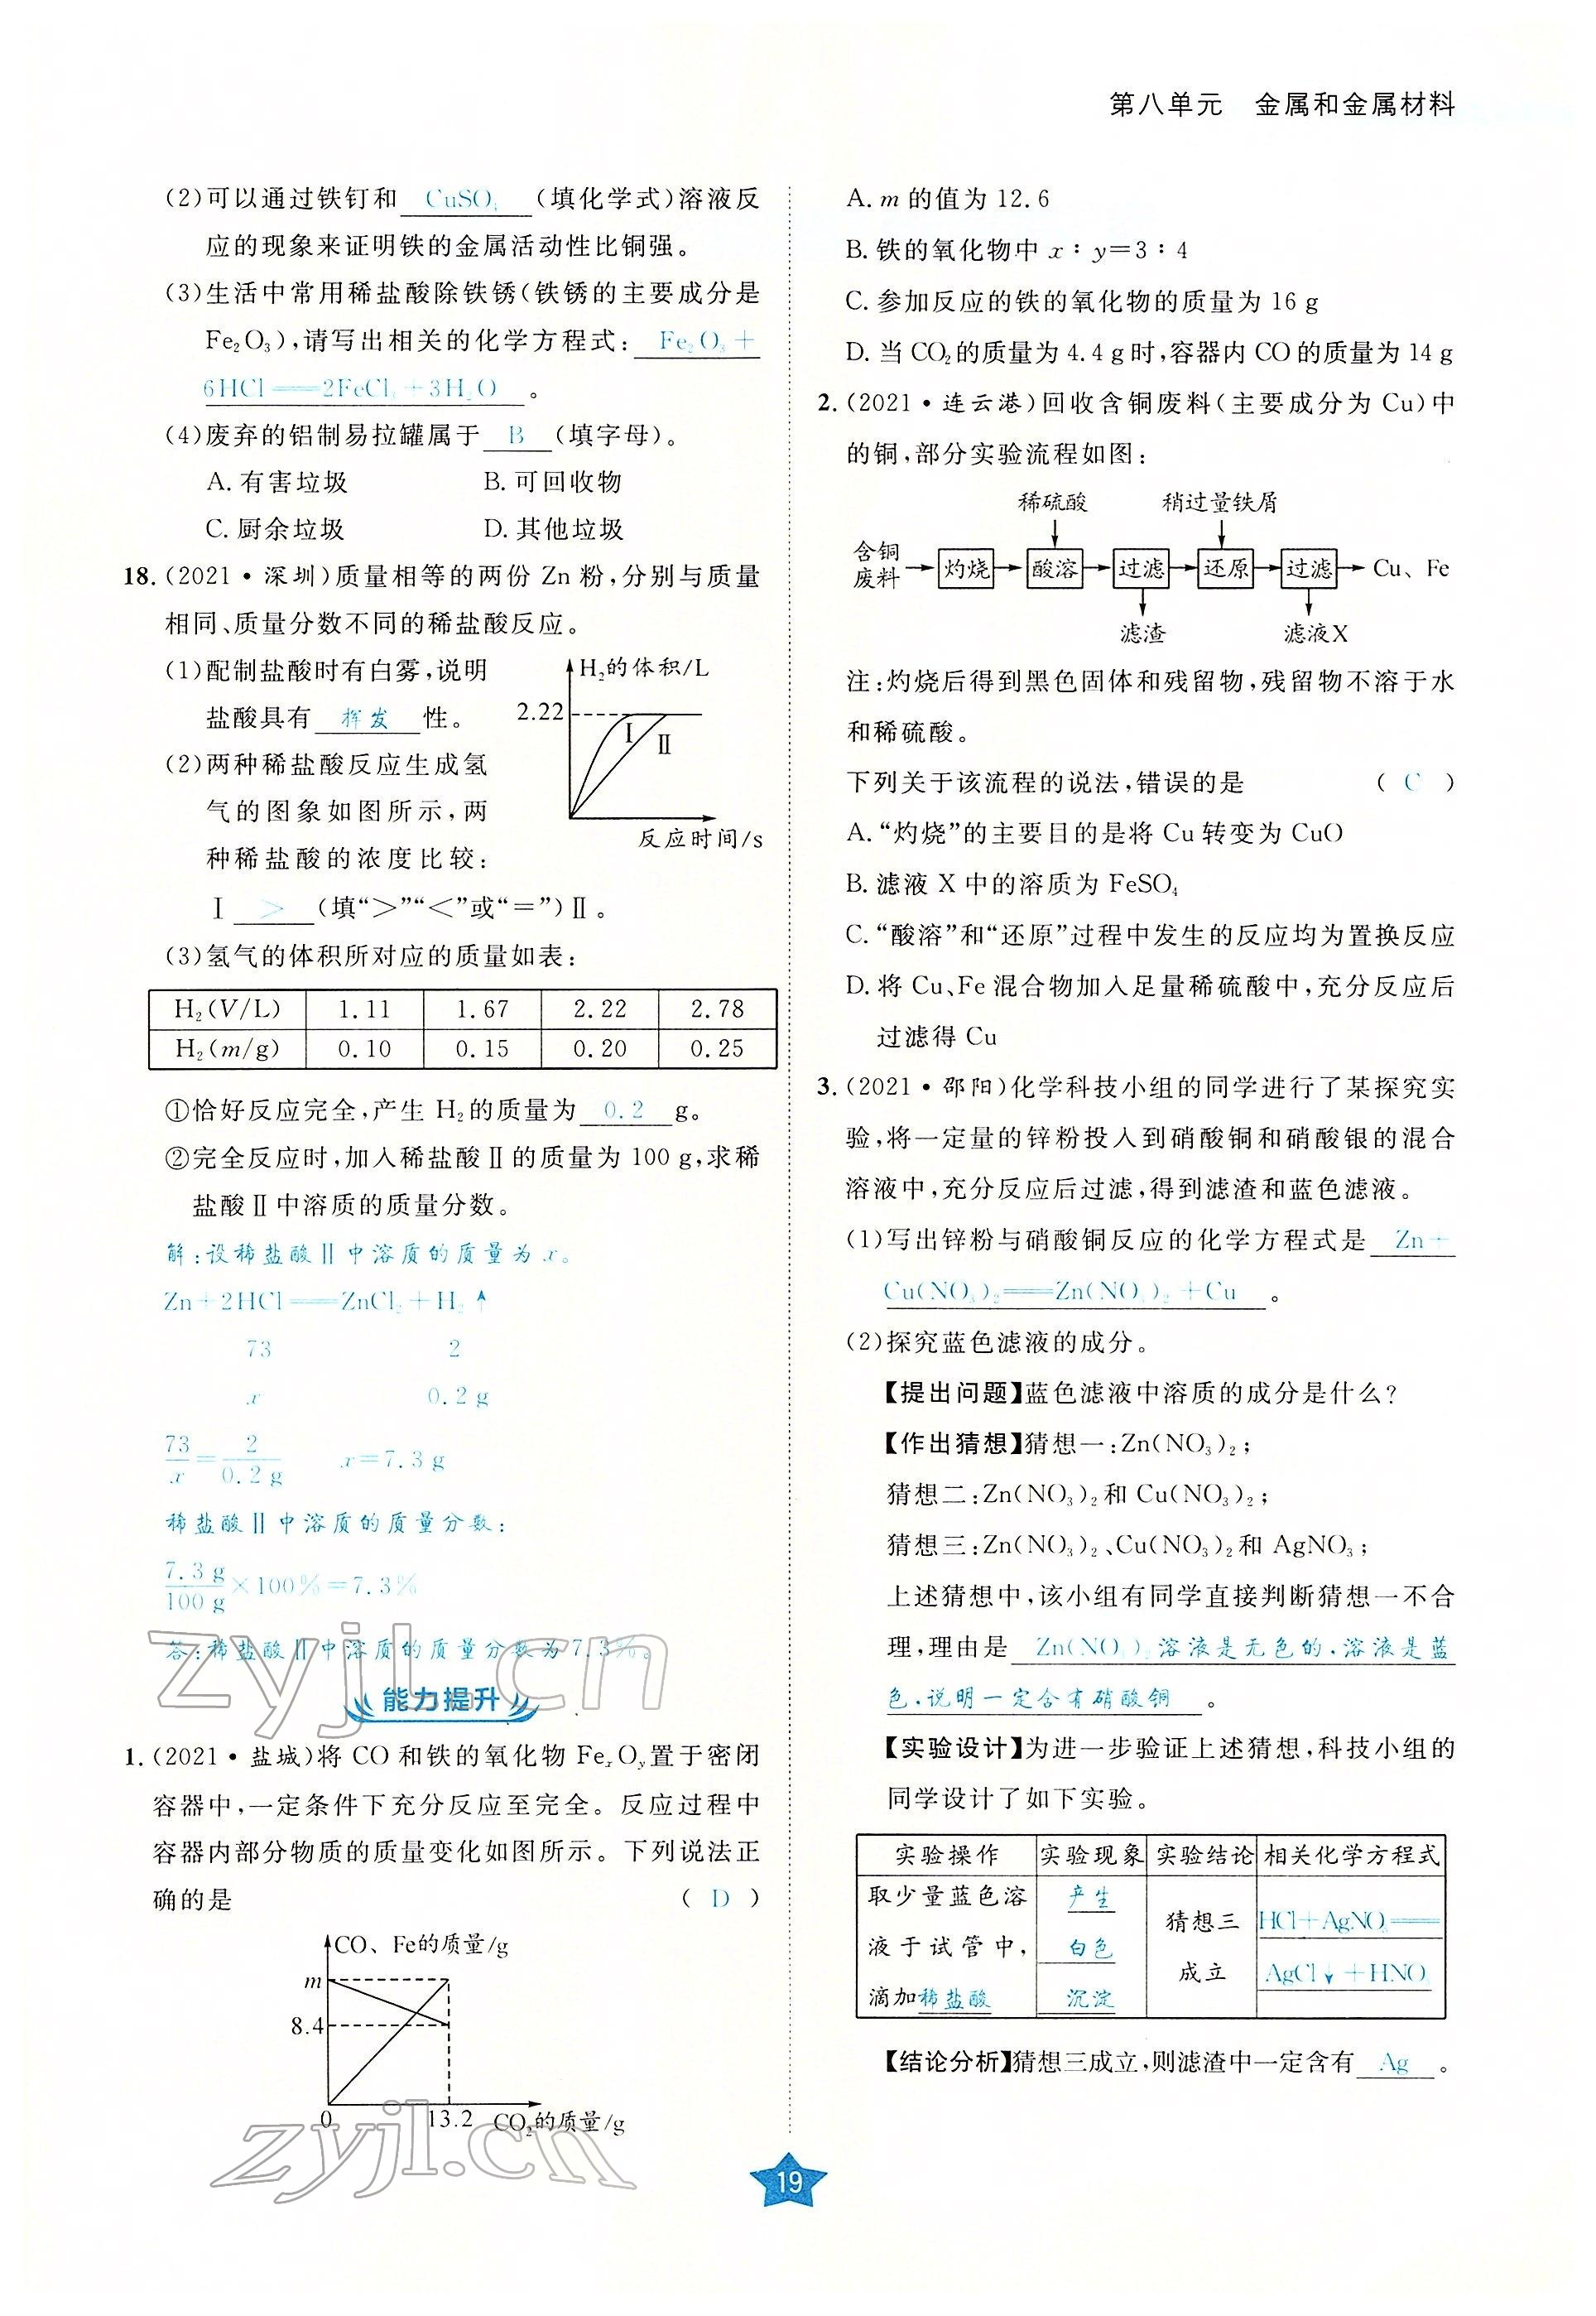 第八单元　金属和金属材料
(2)可以通过铁钉和 CuSO₄ (填化学式)溶液反
应的现象来证明铁的金属活动性比铜强。
(3)生活中常用稀盐酸除铁锈(铁锈的主要成分是
Fe₂O₃),请写出相关的化学方程式: Fe₂O₃+
6HCl══2FeCl₃+3H₂O 。
(4)废弃的铝制易拉罐属于 B (填字母)。
A.有害垃圾　B.可回收物
C.厨余垃圾　D.其他垃圾
18.(2021·深圳)质量相等的两份 Zn 粉,分别与质量
相同、质量分数不同的稀盐酸反应。
(1)配制盐酸时有白雾,说明
盐酸具有 挥发 性。
(2)两种稀盐酸反应生成氢
气的图象如图所示,两
种稀盐酸的浓度比较:
Ⅰ > (填“>”“<”或“=”)Ⅱ。
H₂的体积/L
2.22
Ⅰ
Ⅱ
反应时间/s
(3)氢气的体积所对应的质量如表:
H₂(V/L)　1.11　1.67　2.22　2.78
H₂(m/g)　0.10　0.15　0.20　0.25
①恰好反应完全,产生 H₂的质量为 0.2 g。
②完全反应时,加入稀盐酸Ⅱ的质量为 100 g,求稀
盐酸Ⅱ中溶质的质量分数。
解:设稀盐酸Ⅱ中溶质的质量为 x。
Zn+2HCl══ZnCl₂+H₂↑
73　2
x　0.2 g
73/x=2/0.2 g　x=7.3 g
稀盐酸Ⅱ中溶质的质量分数:
7.3 g/100 g×100%=7.3%
答:稀盐酸Ⅱ中溶质的质量分数为7.3%。
zyjl.cn
能力提升
1.(2021·盐城)将 CO 和铁的氧化物 FeₓOᵧ置于密闭
容器中,一定条件下充分反应至完全。反应过程中
容器内部分物质的质量变化如图所示。下列说法正
确的是　( D )
CO、Fe的质量/g
m
8.4
0　13.2　CO₂的质量/g
zyjl.cn
A. m 的值为 12.6
B.铁的氧化物中 x∶y=3∶4
C.参加反应的铁的氧化物的质量为 16 g
D.当 CO₂的质量为 4.4 g时,容器内 CO 的质量为 14 g
2.(2021·连云港)回收含铜废料(主要成分为 Cu)中
的铜,部分实验流程如图:
稀硫酸　稍过量铁屑
含铜
废料　灼烧　酸溶　过滤　还原　过滤　Cu、Fe
滤渣　滤液X
注:灼烧后得到黑色固体和残留物,残留物不溶于水
和稀硫酸。
下列关于该流程的说法,错误的是　( C )
A.“灼烧”的主要目的是将 Cu 转变为 CuO
B.滤液 X 中的溶质为 FeSO₄
C.“酸溶”和“还原”过程中发生的反应均为置换反应
D.将 Cu、Fe 混合物加入足量稀硫酸中,充分反应后
过滤得 Cu
3.(2021·邵阳)化学科技小组的同学进行了某探究实
验,将一定量的锌粉投入到硝酸铜和硝酸银的混合
溶液中,充分反应后过滤,得到滤渣和蓝色滤液。
(1)写出锌粉与硝酸铜反应的化学方程式是 Zn+
Cu(NO₃)₂══Zn(NO₃)₂+Cu 。
(2)探究蓝色滤液的成分。
【提出问题】蓝色滤液中溶质的成分是什么?
【作出猜想】猜想一:Zn(NO₃)₂;
猜想二:Zn(NO₃)₂和 Cu(NO₃)₂;
猜想三:Zn(NO₃)₂、Cu(NO₃)₂和 AgNO₃;
上述猜想中,该小组有同学直接判断猜想一不合
理,理由是 Zn(NO₃)₂溶液是无色的,溶液是蓝
色,说明一定含有硝酸铜 。
【实验设计】为进一步验证上述猜想,科技小组的
同学设计了如下实验。
实验操作　实验现象　实验结论　相关化学方程式
取少量蓝色溶　产生
液于试管中,　白色　猜想三　HCl+AgNO₃══
滴加稀盐酸　沉淀　成立　AgCl↓+HNO₃
【结论分析】猜想三成立,则滤渣中一定含有 Ag 。
19